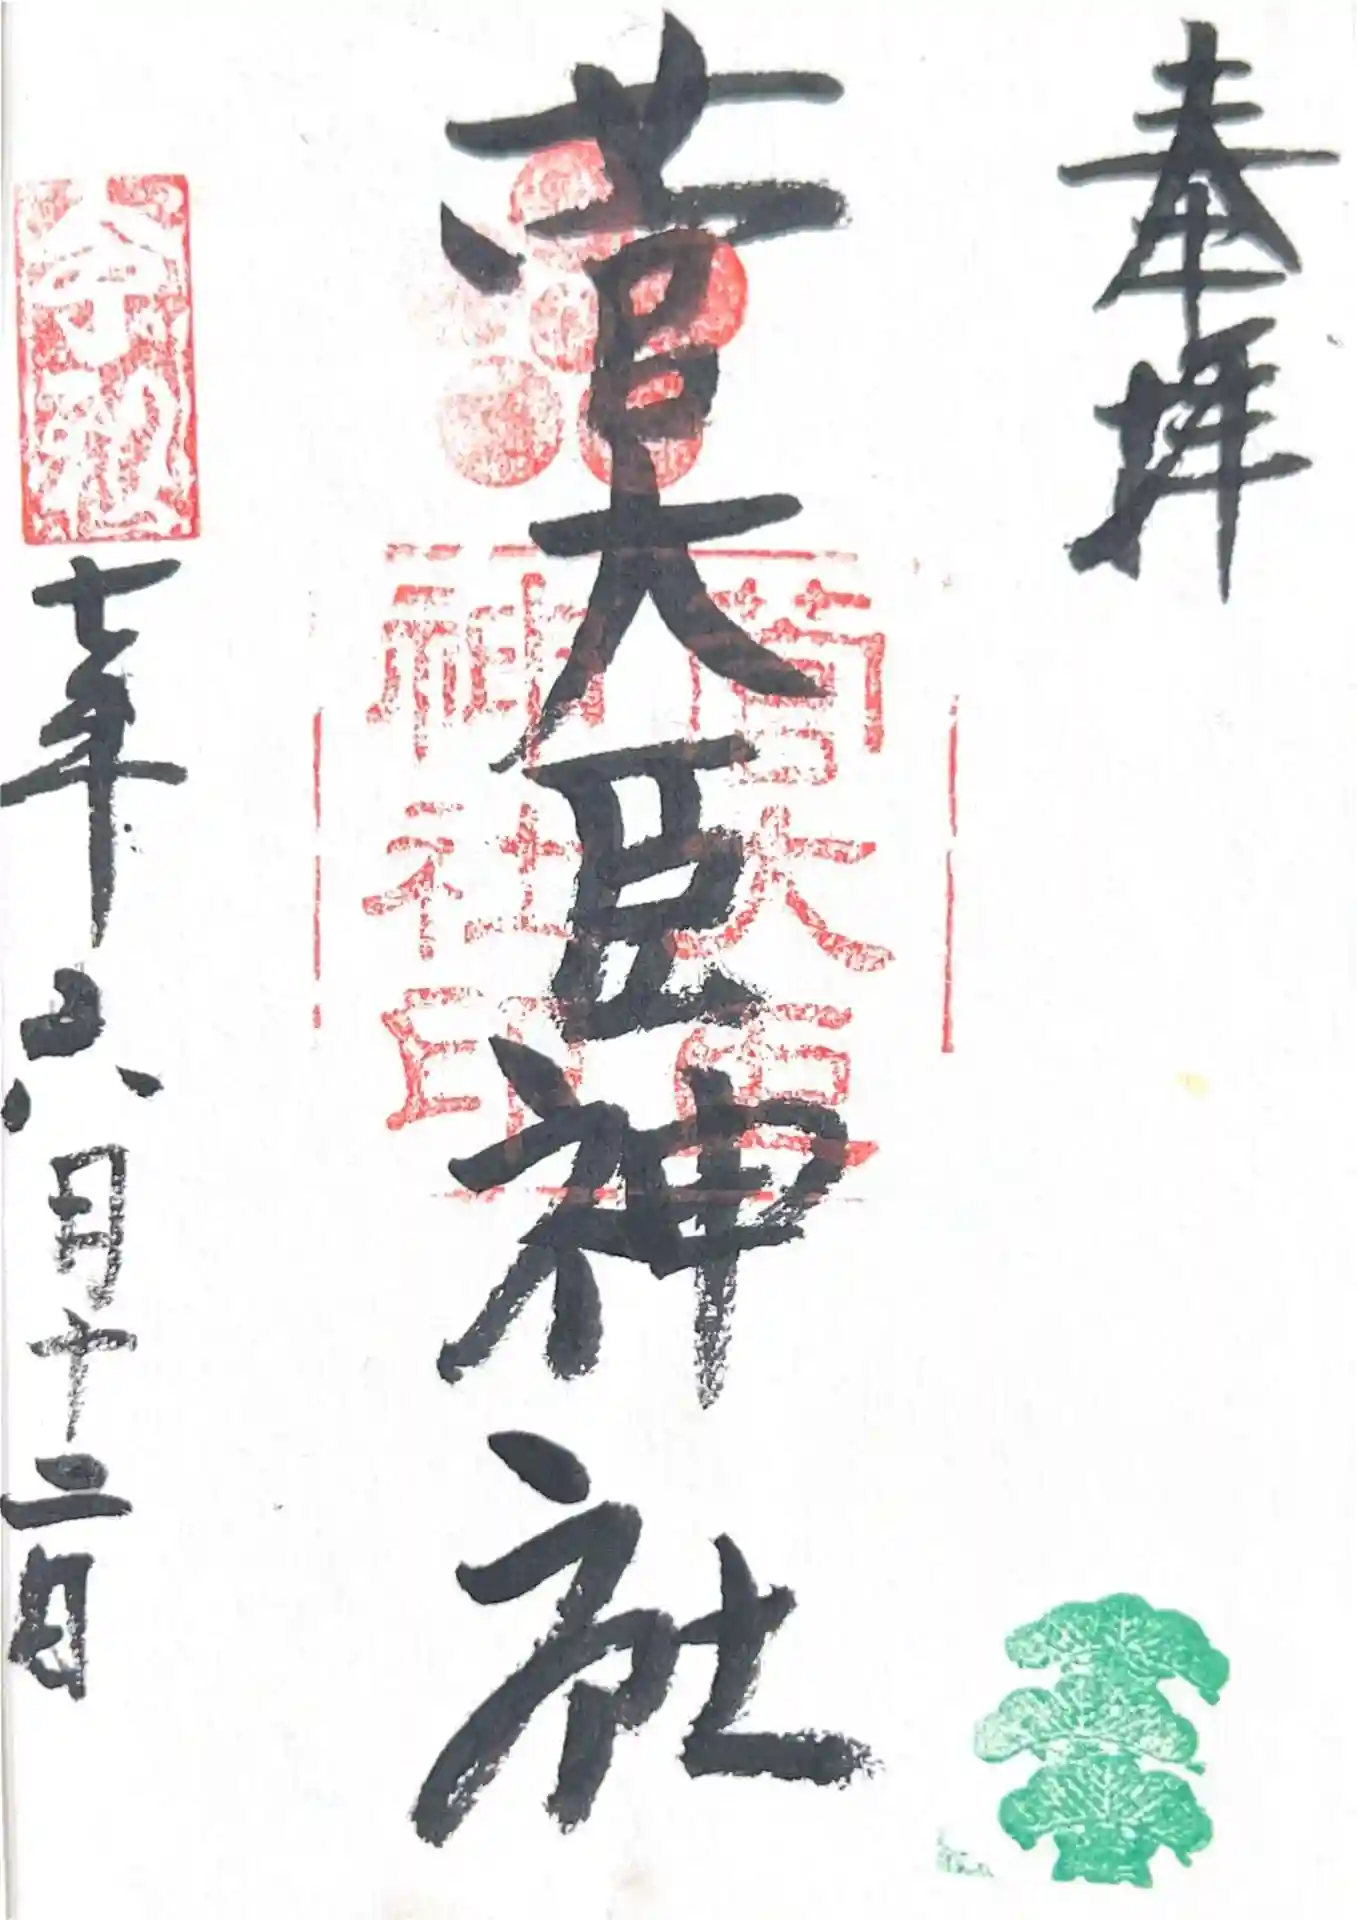 奉拝
菅大臣神社
菅大臣
神社印
令和
七年六月十二日